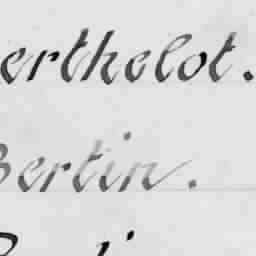 erthelot.
Bertin.